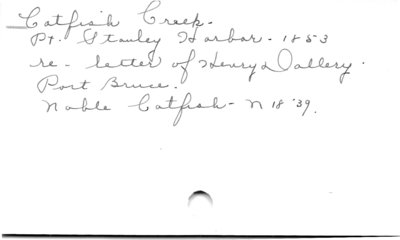 Catfish Creek.
Pt. Stanley Harbor - 1853
re - letter of Henry Dallery.
Port Bruce.
Noble Catfish - N 18 '39.